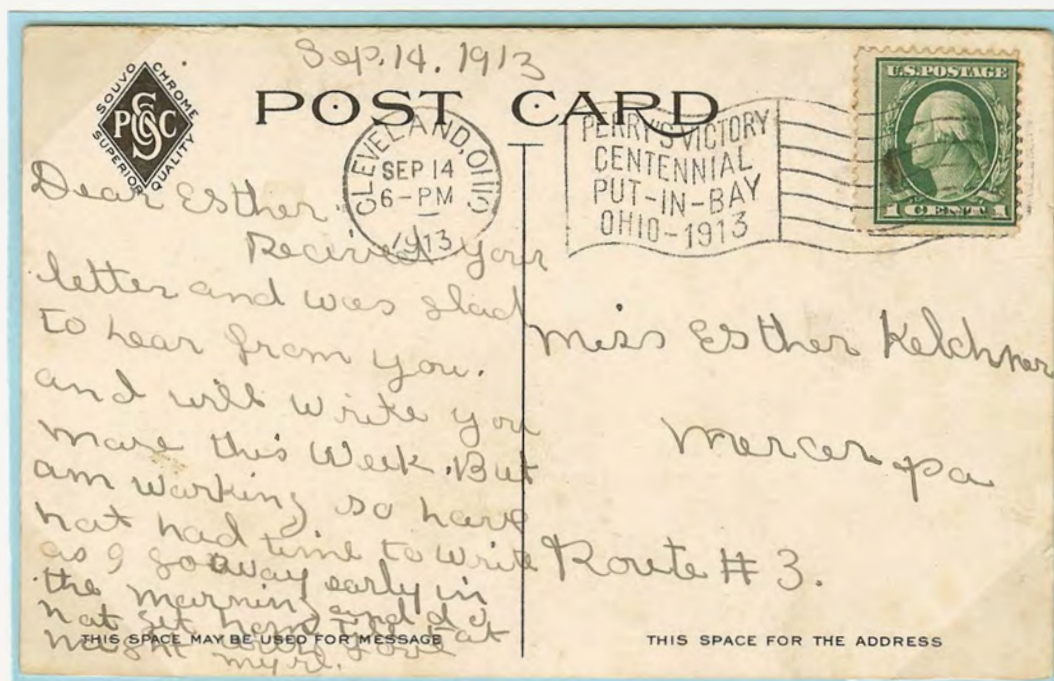 Sep. 14. 1913
SOUVO CHROME
SUPERIOR QUALITY
POST CARD
CLEVELAND, OHIO
SEP 14
6-PM
1913
PERRY'S VICTORY
CENTENNIAL
PUT-IN-BAY
OHIO-1913
U.S. POSTAGE
1 CENT 1
Dear Esther:
Received your
letter and was glad
to hear from you.
and will write you
more this Week. But
am working so have
not had time to write
as I go away early in
the morning and do
not get home till at
night with love
Myrl.
Miss Esther Kelchner
Mercer pa
Route # 3.
THIS SPACE MAY BE USED FOR MESSAGE
THIS SPACE FOR THE ADDRESS